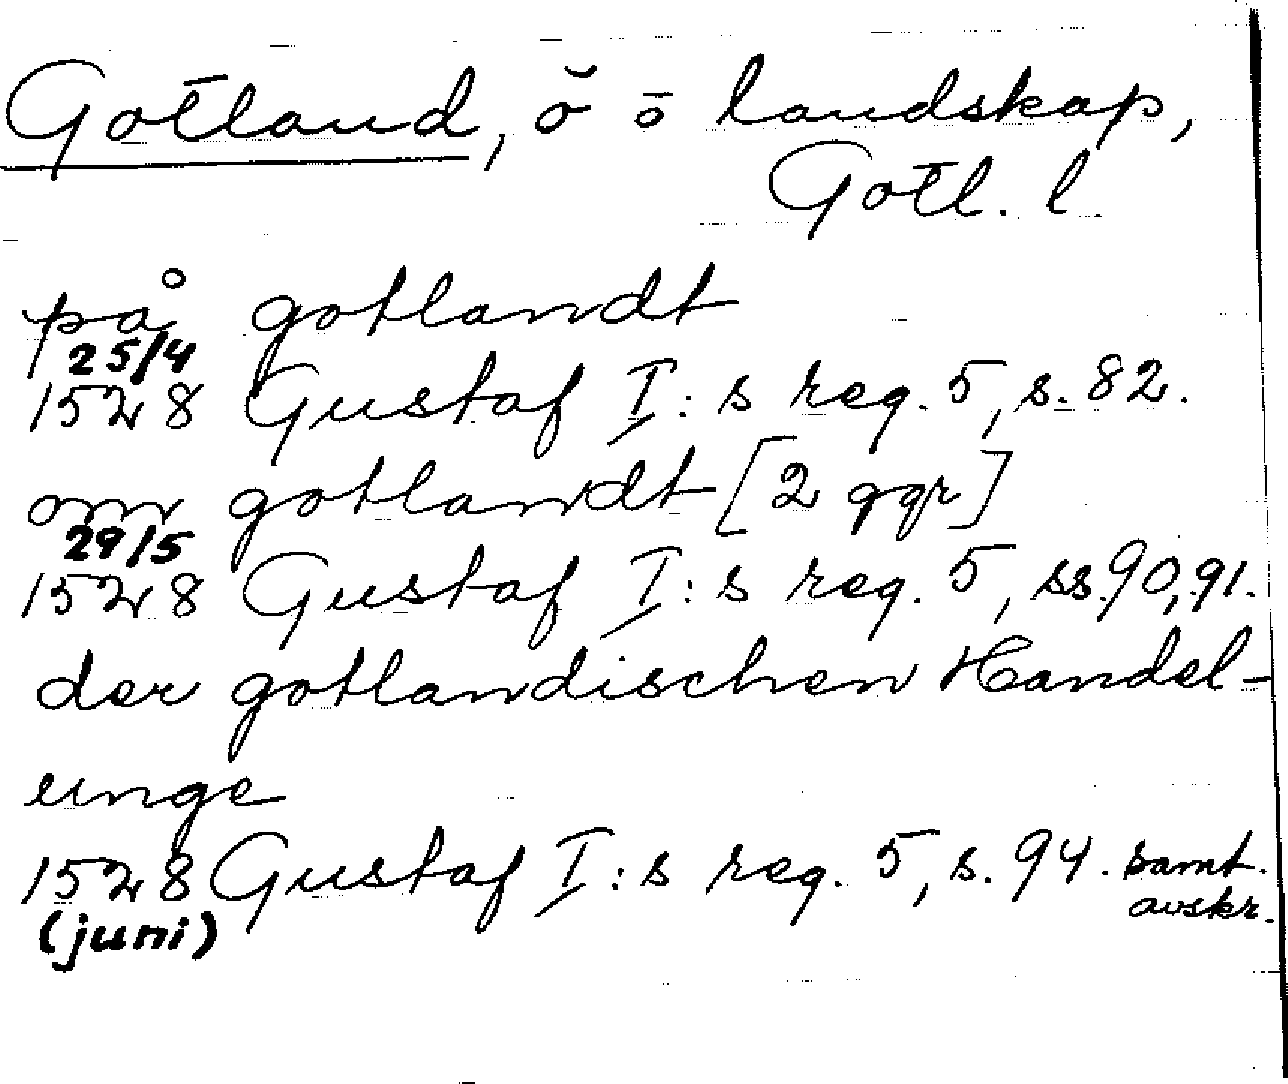 Gotland, ö o landskap,
Gotl. l.
på gotlandt
25/4
1528 Gustaf I:s reg. 5, s. 82.
om gotlandt [2 ggr]
29/5
1528 Gustaf I:s reg. 5, ss. 90, 91.
der gotlandischen Handel-
unge
1528 Gustaf I:s reg. 5, s. 94. samt.
avskr.
(juni)